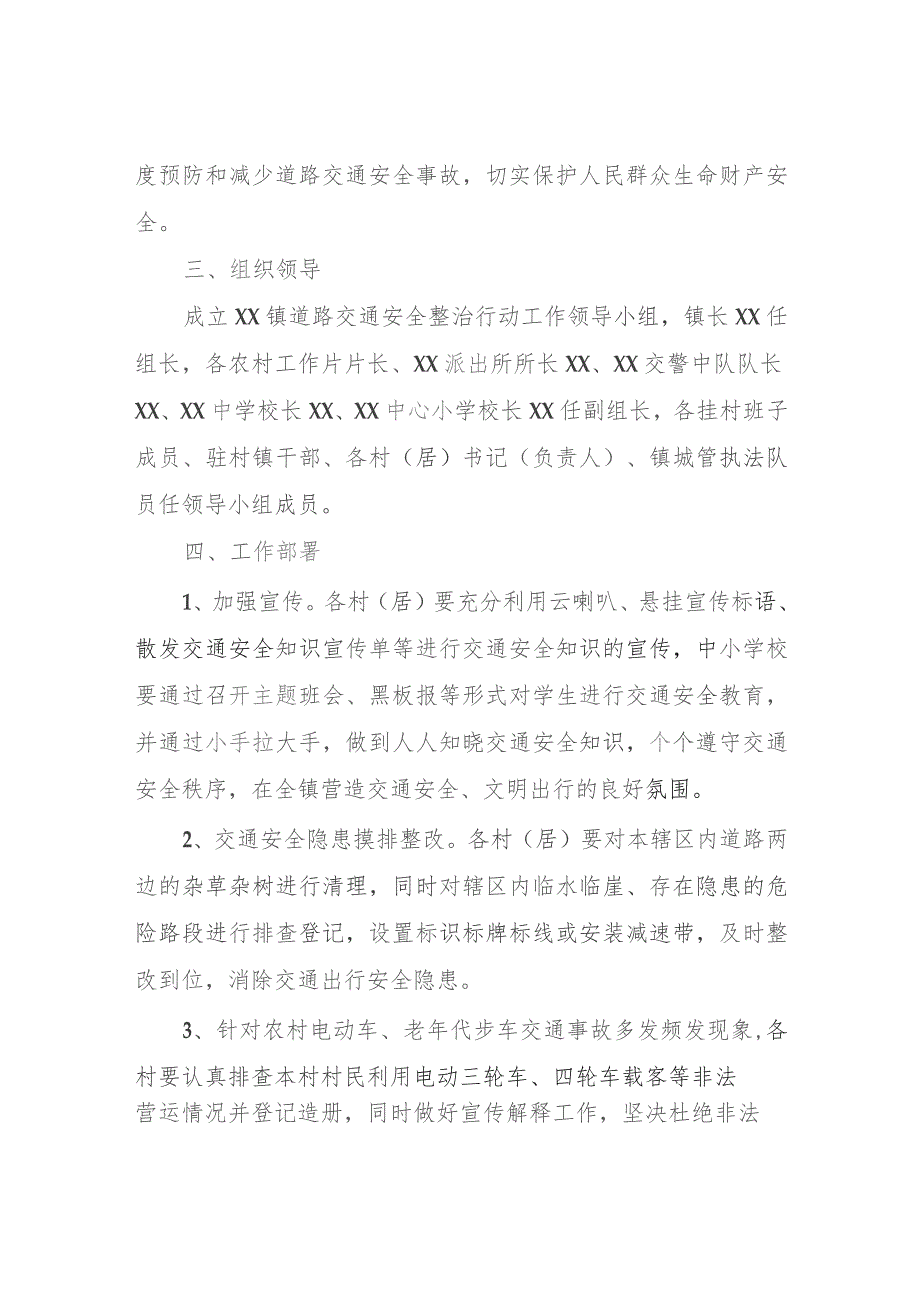 度预防和减少道路交通安全事故，切实保护人民群众生命财产安
全。
三、组织领导
成立 XX 镇道路交通安全整治行动工作领导小组，镇长 XX 任
组长，各农村工作片片长、XX 派出所所长 XX、XX 交警中队队长
XX、XX 中学校长 XX、XX 中心小学校长 XX 任副组长，各挂村班子
成员、驻村镇干部、各村（居）书记（负责人）、镇城管执法队
员任领导小组成员。
四、工作部署
1、加强宣传。各村（居）要充分利用云喇叭、悬挂宣传标语、
散发交通安全知识宣传单等进行交通安全知识的宣传，中小学校
要通过召开主题班会、黑板报等形式对学生进行交通安全教育，
并通过小手拉大手，做到人人知晓交通安全知识，个个遵守交通
安全秩序，在全镇营造交通安全、文明出行的良好氛围。
2、交通安全隐患摸排整改。各村（居）要对本辖区内道路两
边的杂草杂树进行清理，同时对辖区内临水临崖、存在隐患的危
险路段进行排查登记，设置标识标牌标线或安装减速带，及时整
改到位，消除交通出行安全隐患。
3、针对农村电动车、老年代步车交通事故多发频发现象,各
村要认真排查本村村民利用电动三轮车、四轮车载客等非法
营运情况并登记造册，同时做好宣传解释工作，坚决杜绝非法